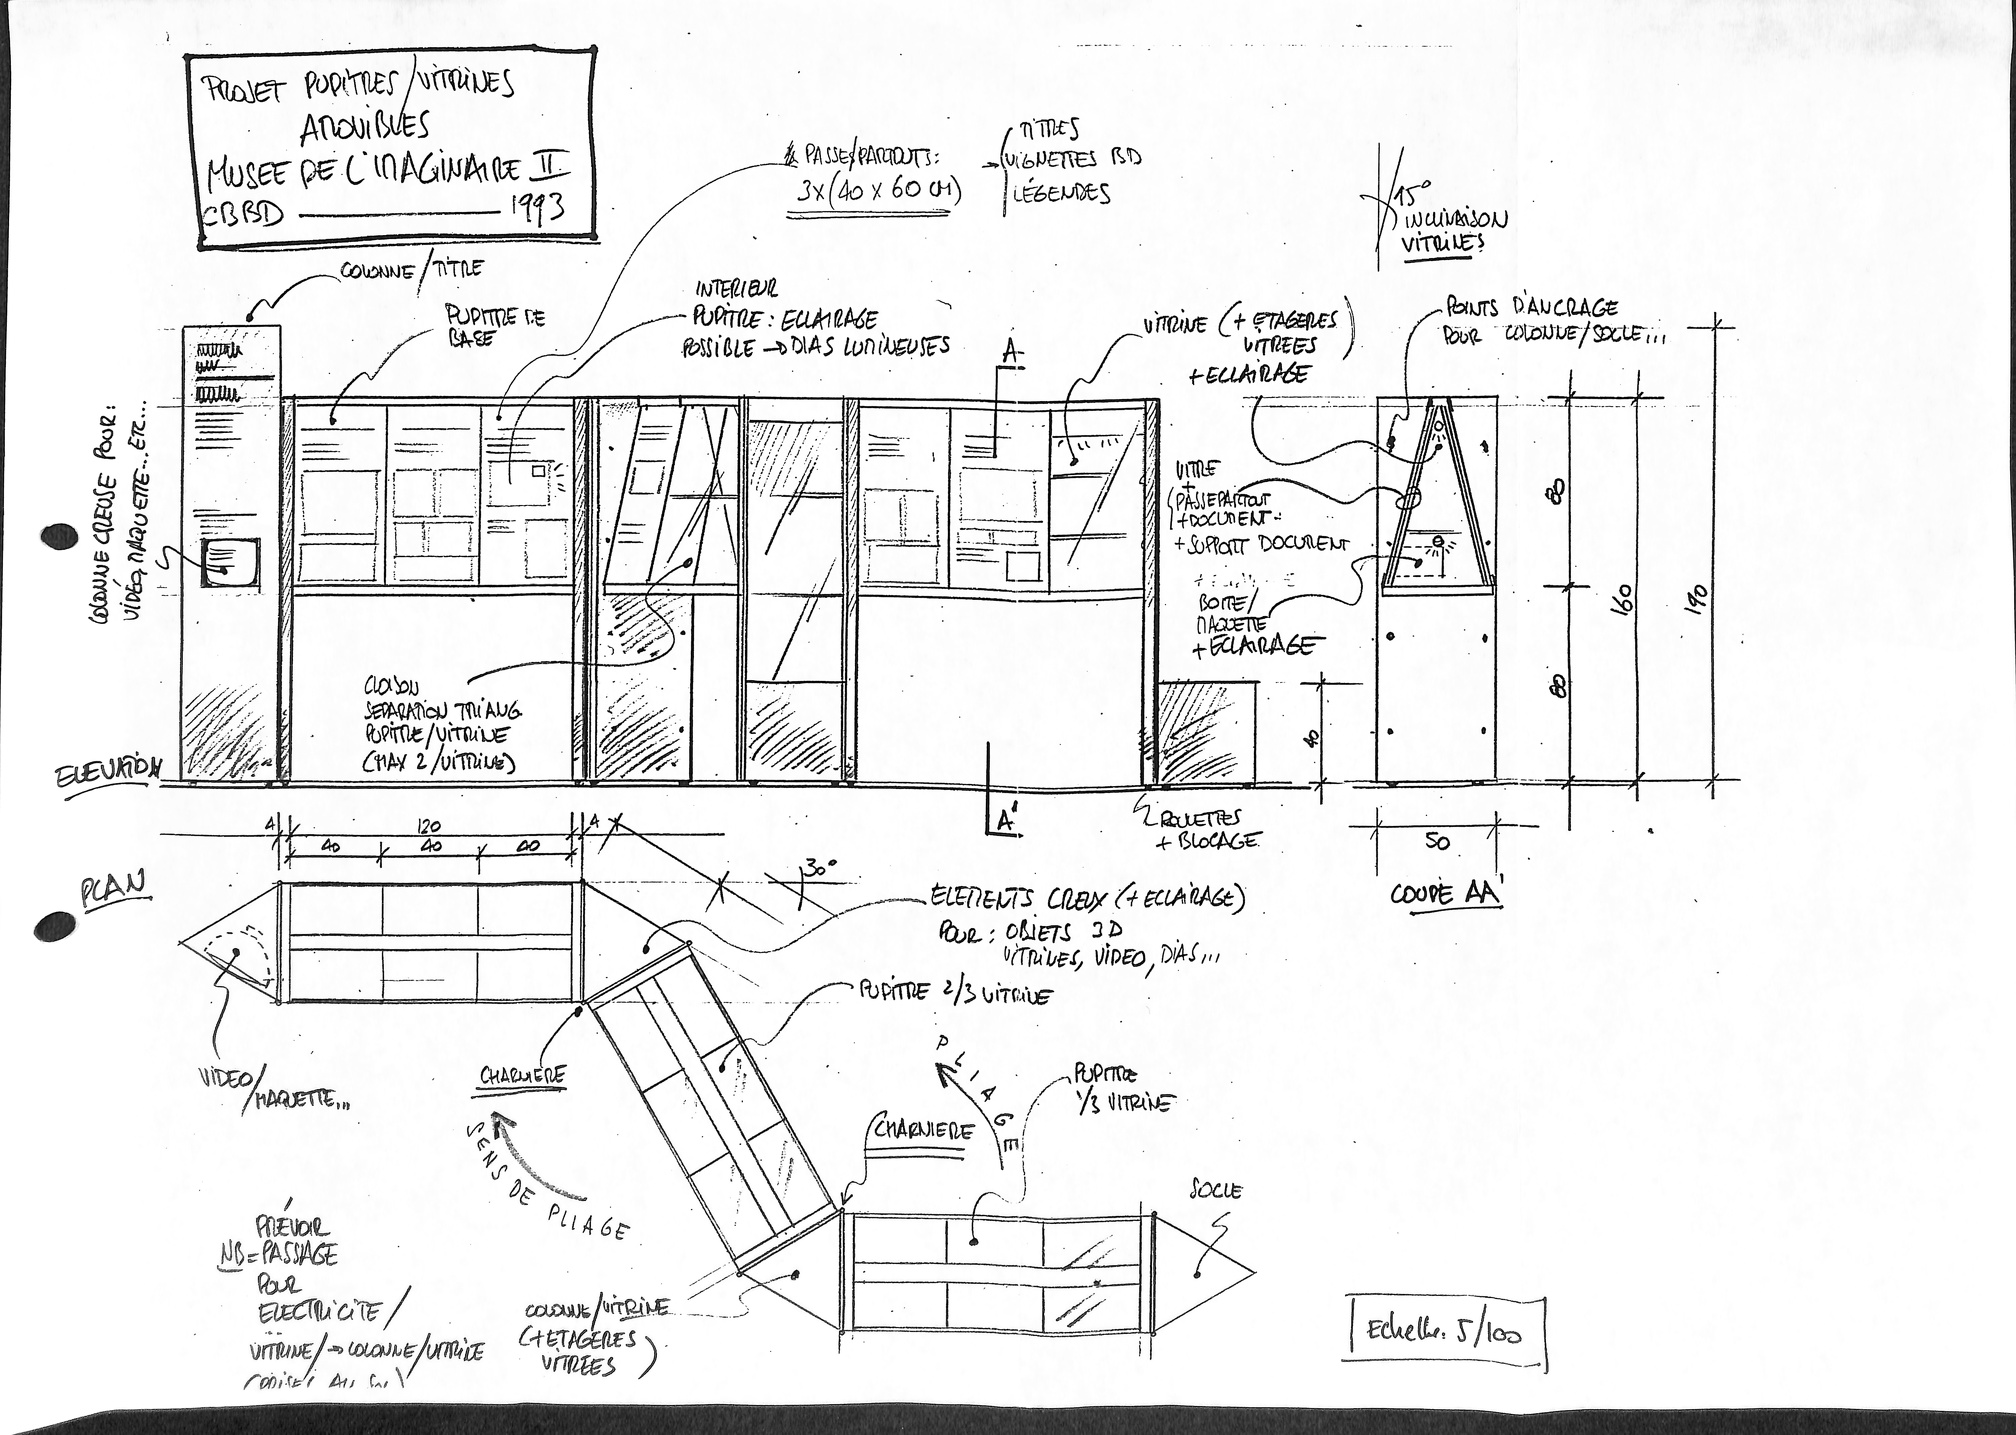 PROJET PUPITRES/VITRINES
AMOVIBLES
MUSEE DE L'IMAGINAIRE II
CBBD 1993
COLONNE/TITRE
PUPITRE DE
BASE
PASSE/PARTOUTS:
3x(40 x 60 CM)
TITRES
VIGNETTES BD
LÉGENDES
INTERIEUR
PUPITRE: ECLAIRAGE
POSSIBLE → DIAS LUMINEUSES
A
VITRINE (+ ETAGERES
VITREES)
+ ECLAIRAGE
15°
INCLINAISON
VITRINES
POINTS D'ANCRAGE
POUR COLONNE/SOCLE...
COLONNE CREUSE POUR:
VIDÉO, MAQUETTE... ETC...
VITRE
+
PASSEPARTOUT
+ DOCUMENT
+ SUPPORT DOCUMENT
BOITE/
MAQUETTE
+ ECLAIRAGE
80
80
160
190
40
CLOISON
SEPARATION TRIANG.
PUPITRE/VITRINE
(MAX 2/VITRINE)
ELEVATION
A'
ROULETTES
+ BLOCAGE
50
COUPE AA'
4
120
4
40
40
40
30°
PLAN
ELEMENTS CREUX (+ ECLAIRAGE)
POUR: OBJETS 3D
VITRINES, VIDEO, DIAS...
PUPITRE 2/3 VITRINE
VIDEO/
MAQUETTE...
CHARNIERE
SENS DE PLIAGE
PLIAGE
CHARNIERE
PUPITRE
1/3 VITRINE
SOCLE
PRÉVOIR
NB = PASSAGE
POUR
ELECTRICITE/
VITRINE/→COLONNE/VITRINE
COLONNE/VITRINE
(+ ETAGERES
VITREES)
Echelle: 5/100